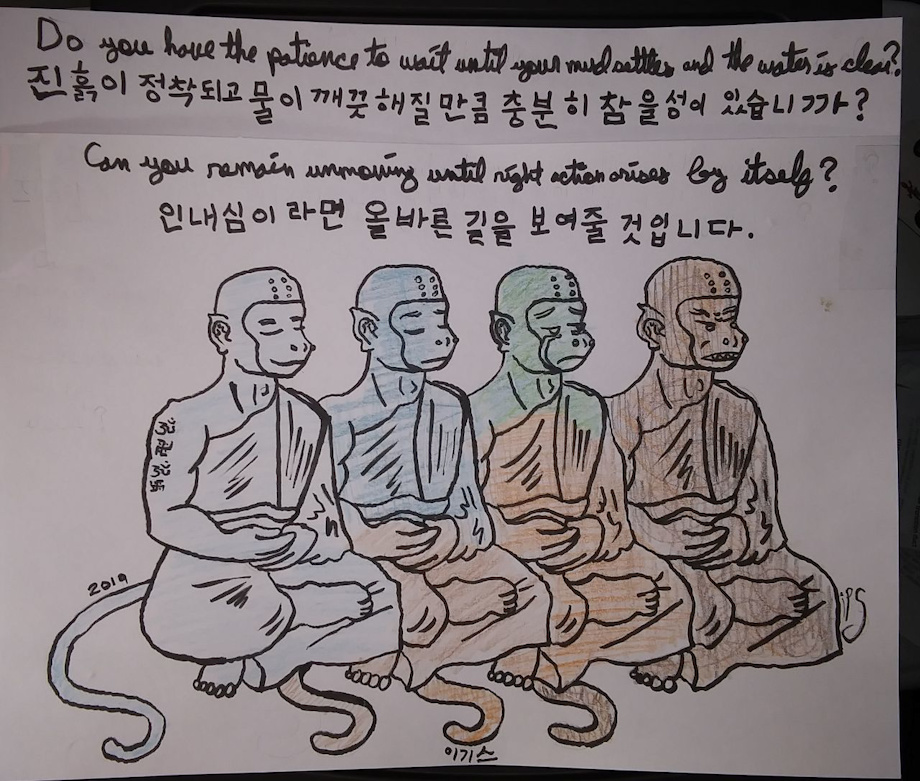 Do you have the patience to wait until your mud settles and the water is clear?
진흙이 정착되고 물이 깨끗해질만큼 충분히 참을성이 있습니까?
Can you remain unmoving until right action arises by itself?
인내심이라면 올바른 길을 보여줄 것입니다.
2019
ips
이기스